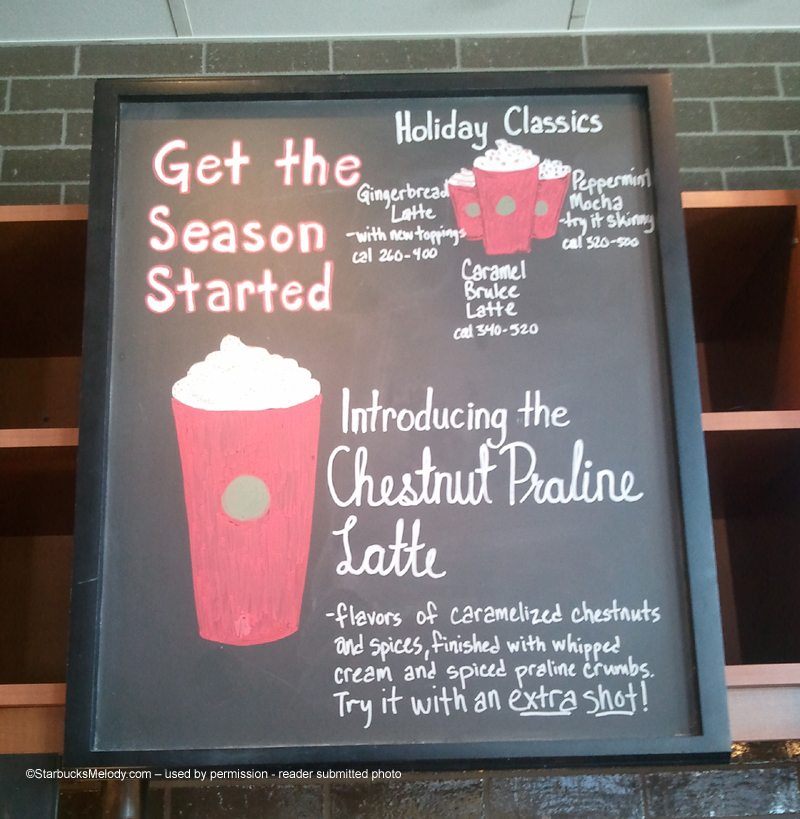 Get the
Season
Started
Holiday Classics
Gingerbread
Latte
-with new toppings
cal 260-400
Peppermint
Mocha
-try it skinny
cal 320-500
Caramel
Brulee
Latte
cal 340-520
Introducing the
Chestnut Praline
Latte
-flavors of caramelized chestnuts
and spices, finished with whipped
cream and spiced praline crumbs.
Try it with an extra shot!
©StarbucksMelody.com – used by permission - reader submitted photo